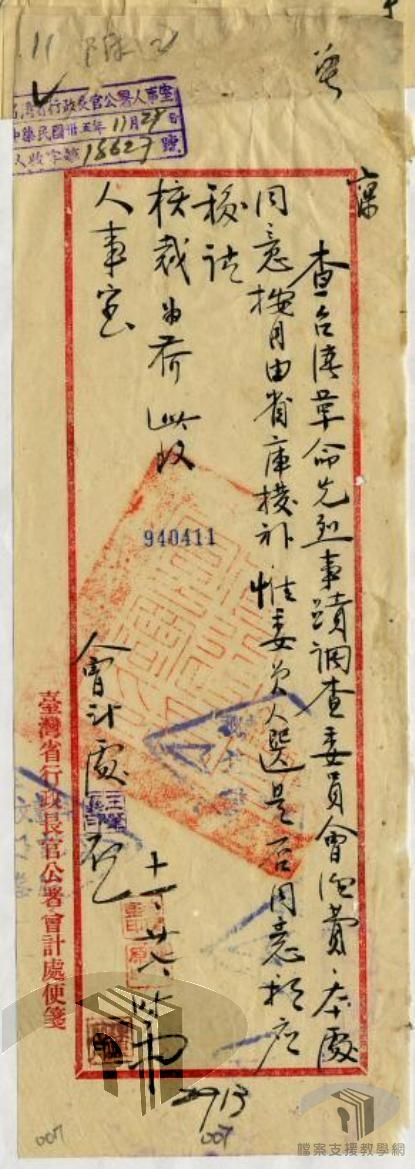 台灣省行政長官公署人事室
中華民國卅五年11月28日
人收字第15627號
查台湾革命先烈事蹟調查委員會經費,本處
同意按月由省庫撥补,惟委员人選是否同意,拟应
移請
核裁為荷 此致
人事室
會計處啟
十一、廿六
940411
臺灣省行政長官公署會計處便箋
007
007
檔案支援教學網